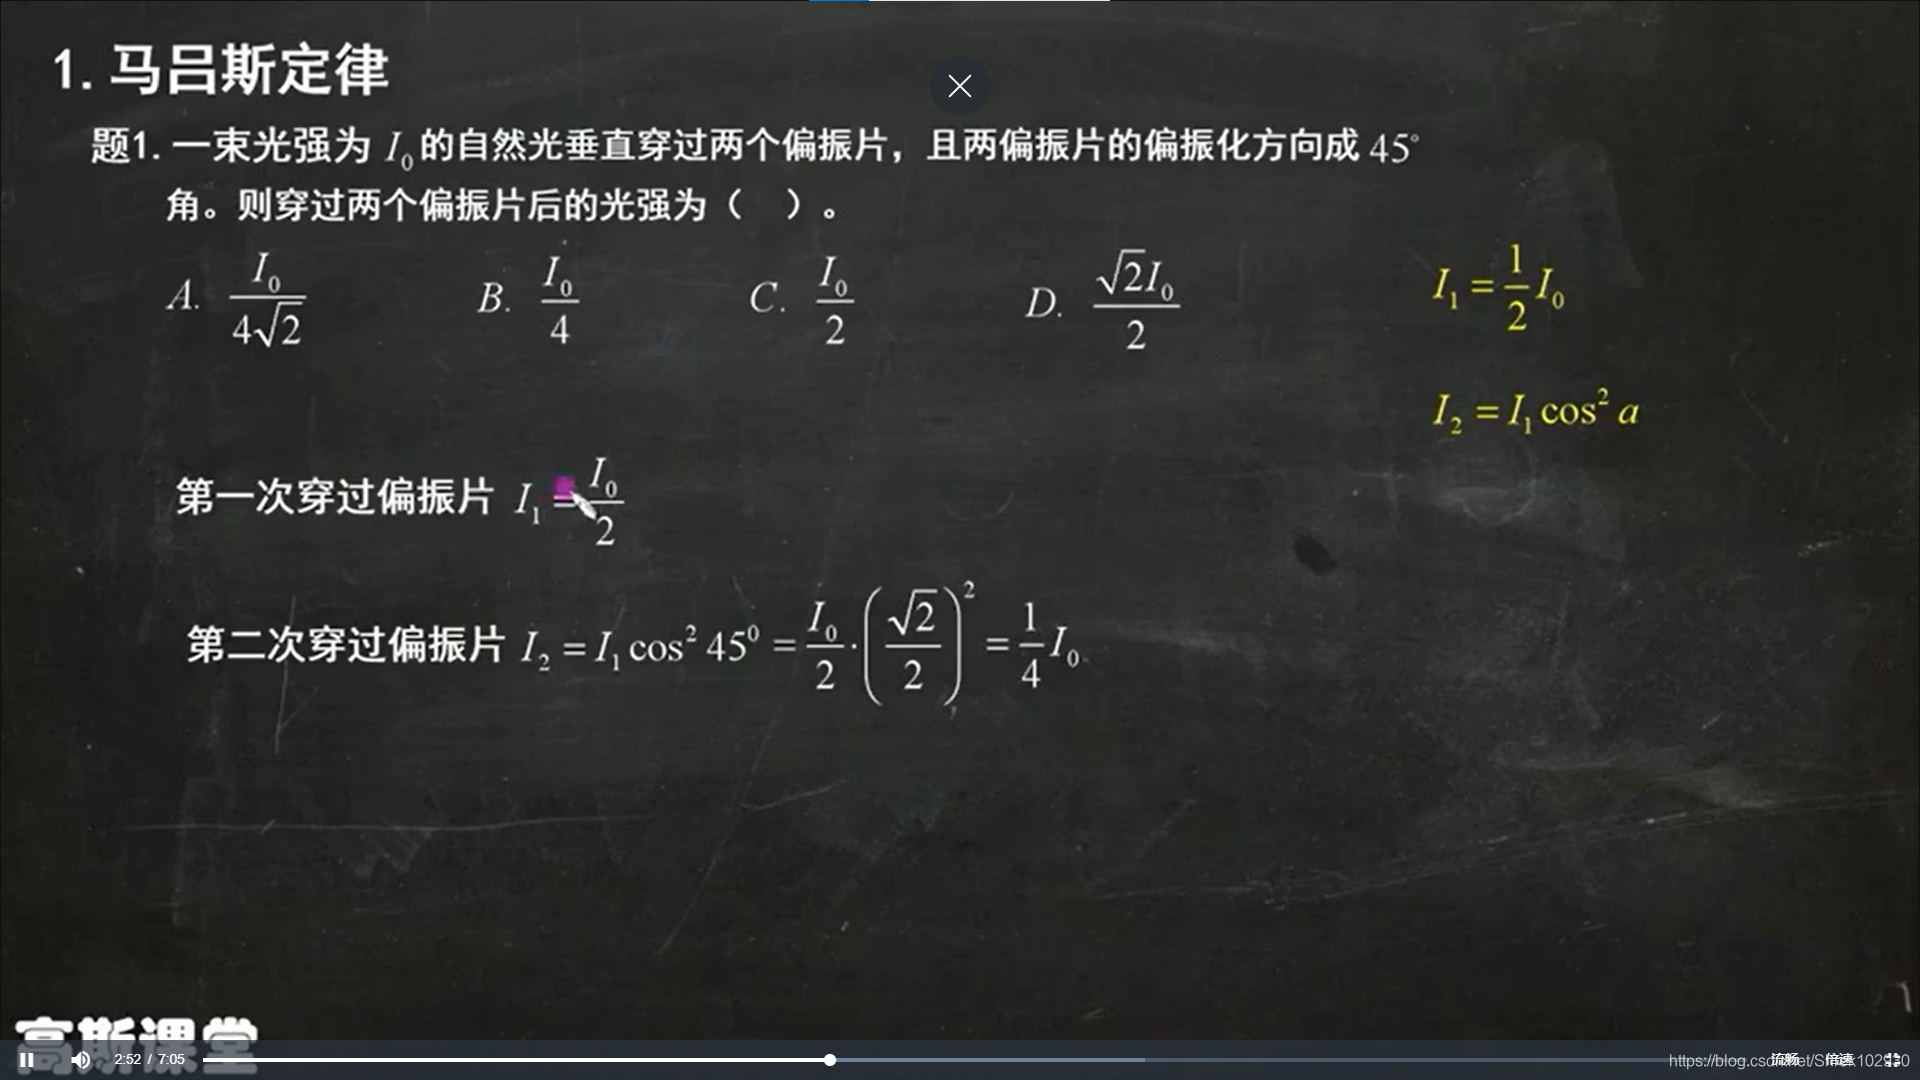 1.马吕斯定律
题1.一束光强为 I₀ 的自然光垂直穿过两个偏振片，且两偏振片的偏振化方向成 45°
角。则穿过两个偏振片后的光强为（ ）。
A. I₀/(4√2) B. I₀/4 C. I₀/2 D. √2I₀/2
I₁ = 1/2 I₀
I₂ = I₁ cos² a
第一次穿过偏振片 I₁ = I₀/2
第二次穿过偏振片 I₂ = I₁ cos² 45⁰ = I₀/2 · (√2/2)² = 1/4 I₀
高斯课堂
2:52 / 7:05
流畅 倍速